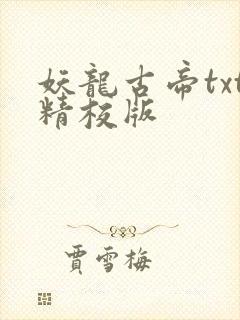 妖龍古帝txt
精校版
賈雪梅